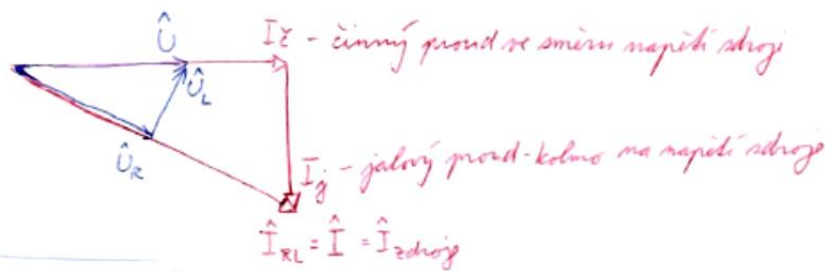 Û Ič - činný proud ve směru napětí zdroje
Û_L
Û_R
Ij - jalový proud - kolmo na napětí zdroje
Î_RL = Î = Î_zdroje